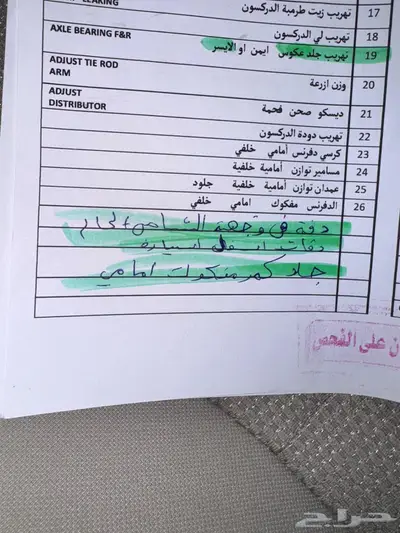 LEAKING
تهريب زيت طرمبة الدركسون 17
تهريب لي الدركسون 18
AXLE BEARING F&R
تهريب جلد عكوس ايمن او الايسر 19
ADJUST TIE ROD
ARM
وزن ازرعة 20
ADJUST
DISTRIBUTOR
ديسكو صحن فحمة 21
تهريب دودة الدركسون 22
كرسي دفرنس أمامي خلفي 23
مسامير توازن أمامية خلفية 24
عمدان توازن أمامية خلفية جلود 25
الدفرنس مفكوك امامي خلفي 26
دقة في وجهة
دقات اسفل السيارة
جلد كمر مفكوك امامي
ن على الفحص
حراج